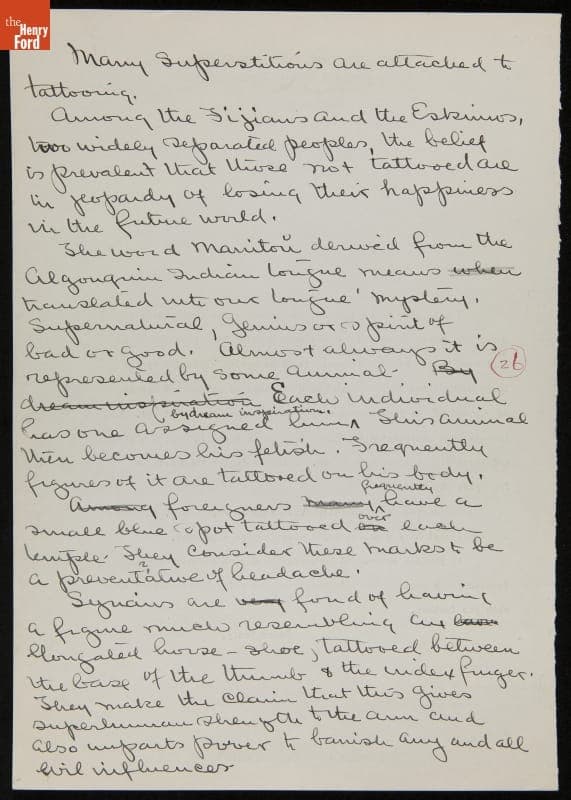 the
Henry
Ford
Many Superstitions are attached to
tattooing.
Among the Fijians and the Eskimos,
two widely separated peoples, the belief
is prevalent that those not tattooed are
in jeopardy of losing their happiness
in the future world.
The word Manitou derived from the
Algonquin Indian tongue means when
translated into our tongue mystery,
Supernatural, Genius or spirit of
bad or good. Almost always it is
represented by some animal. By
26
dream inspiration Each individual
by dream inspiration.
has one assigned him. This animal
then becomes his fetish. Frequently
figures of it are tattooed on his body.
frequently
Among foreigners many have a
over
small blue spot tattooed on each
temple. They consider these marks to be
a preventative of headache.
Syrians are very fond of having
a figure much resembling an
Elongated horse-shoe, tattooed between
the base of the thumb & the index finger.
They make the claim that this gives
superhuman strength to the arm and
also imparts power to banish any and all
evil influences